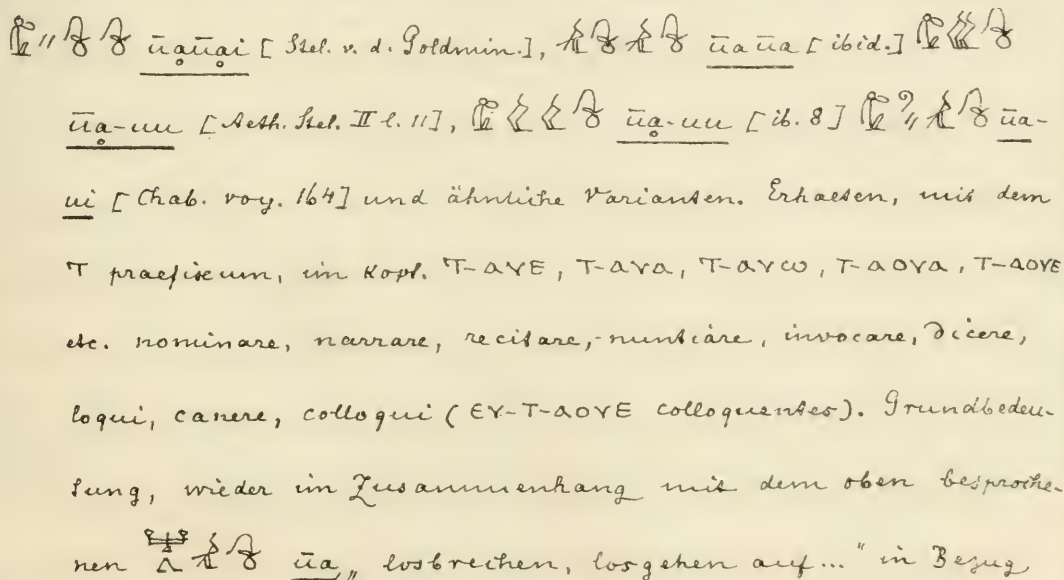 ūạūại [Stel. v. d. Goldmin.], ūa ūa [ibid.]
ūạ-uu [Aeth. Stel. II l. 11], ūạ-uu [ib. 8] ūa-
ui [Chab. voy. 164] und ähnliche Varianten. Erhalten, mit dem
T praefixum, im Kopt. ⲧ-ⲁⲩⲉ, ⲧ-ⲁⲩⲁ, ⲧ-ⲁⲩⲱ, ⲧ-ⲁⲟⲩⲁ, ⲧ-ⲁⲟⲩⲉ
etc. nominare, narrare, recitare, nuntiare, invocare, dicere,
loqui, canere, colloqui (ⲉⲩ-ⲧ-ⲁⲟⲩⲉ colloquentes). Grundbedeu-
tung, wieder im Zusammenhang mit dem oben besproche-
nen ūa „losbrechen, losgehen auf..." in Bezug